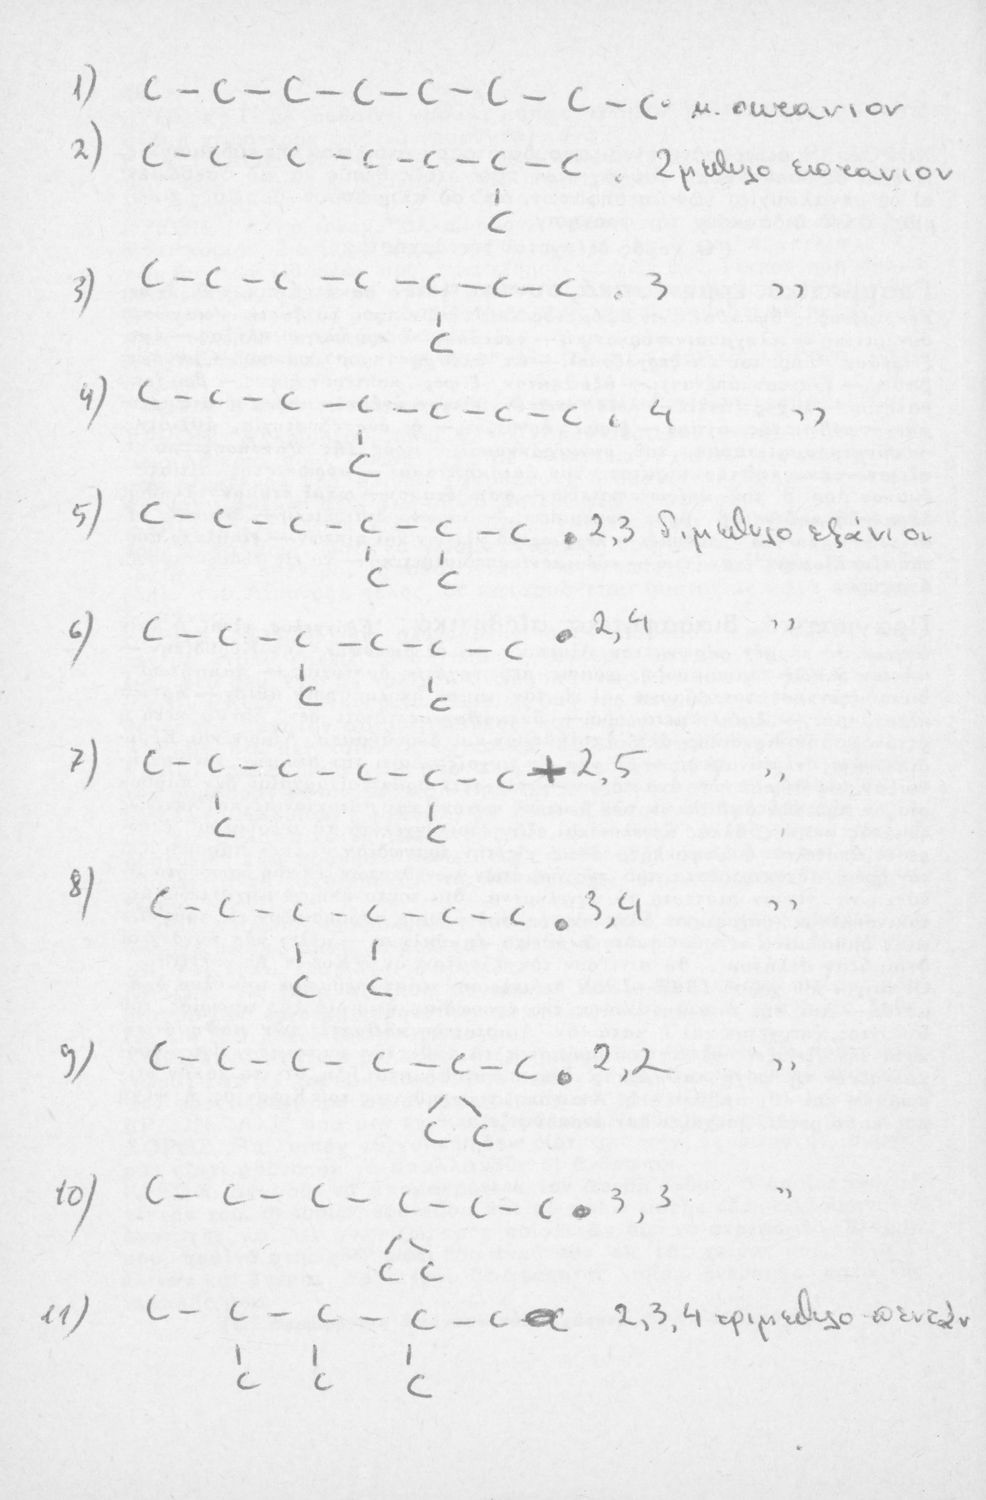 1) C - C - C - C - C - C - C - C. μ. οκτανιον
2) C - C - C - C - C - C - C . 2 μεθυλο επτανιον
C
3) C - C - C - C - C - C - C . 3 ,,
C
4) C - C - C - C - C - C - C . 4 ,,
C
5) C - C - C - C - C - C . 2,3 διμεθυλο εξάνιον
C C
6) C - C - C - C - C - C . 2,4 ,,
C C
7) C - C - C - C - C - C + 2,5 ,,
C C
8) C - C - C - C - C - C . 3,4 ,,
C C
9) C - C - C - C - C - C . 2,2 ,,
C C
10) C - C - C - C - C - C . 3,3 ,,
C C
11) C - C - C - C - C 2,3,4 τριμεθυλο πεντάν
C C C